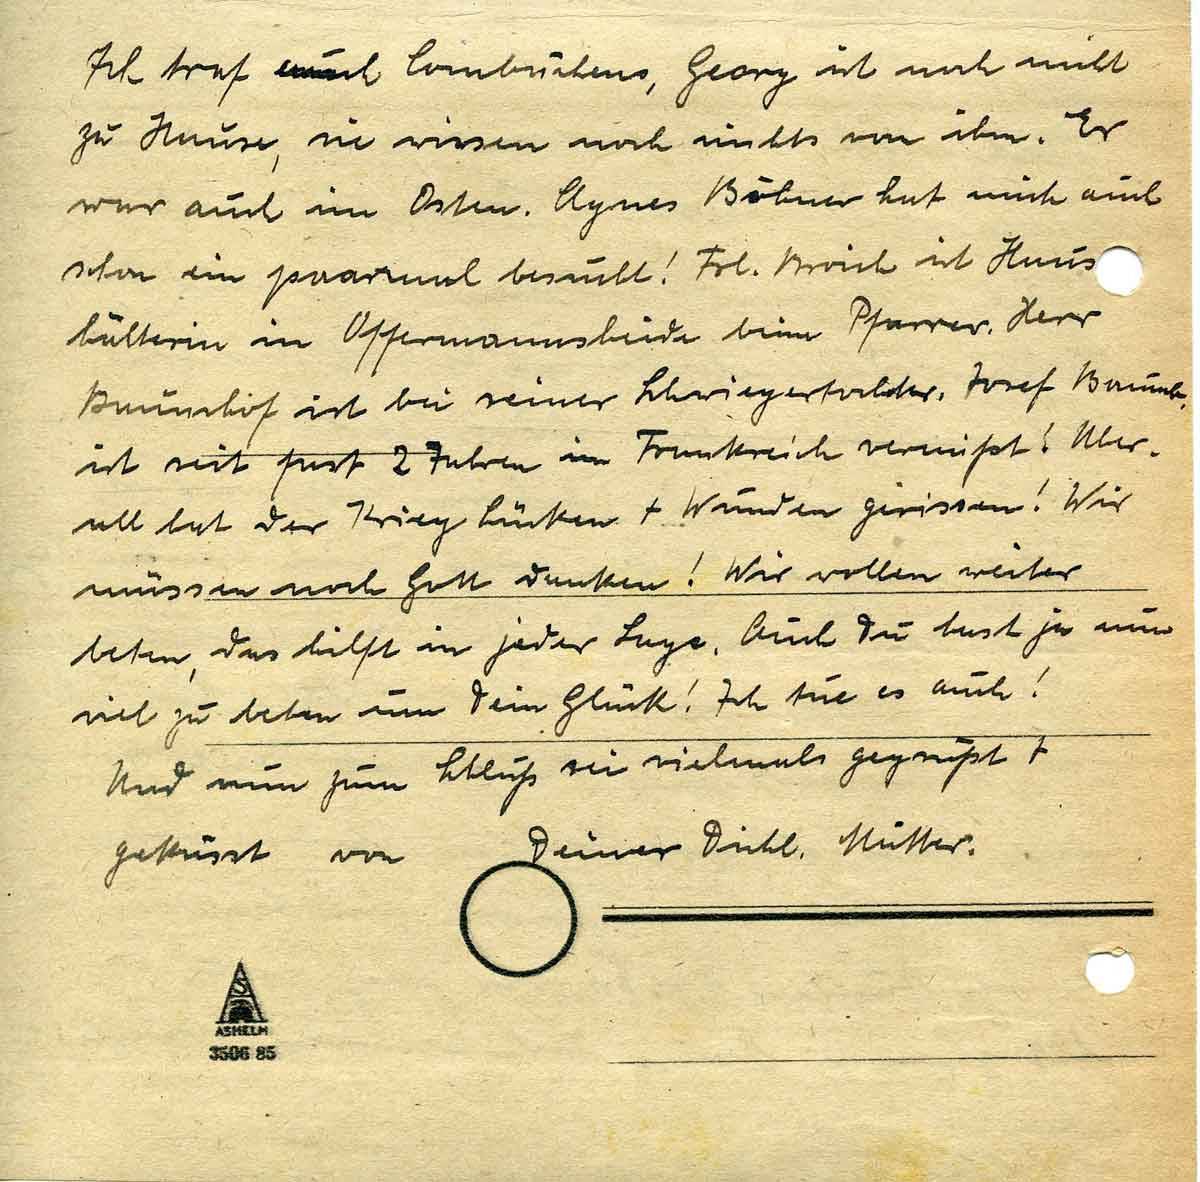 Ich traf auch Lombüchens, Georg ist noch nicht
zu Hause, sie wissen noch nichts von ihm. Er
war auch im Osten. Agnes Böhner hat mich auch
schon ein paarmal besucht! Frl. Broich ist Haus
hälterin in Offermannsheide beim Pfarrer. Herr
ist bei seiner Schwiegertochter. Josef
ist seit fast 2 Jahren in Frankreich vermißt! Über-
all hat der Krieg Lücken + Wunden gerissen! Wir
müssen noch Gott danken! Wir wollen weiter
beten, das hilft in jeder Lage. Auch Du hast ja nun
viel zu beten um Dein Glück! Ich tue es auch!
Und nun zum Schluß sei vielmals gegrüßt +
geküsst von Deiner Dichl. Mutter.
S
ASHELM
3506 85